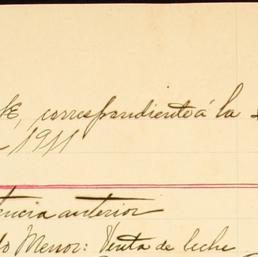 correspondiente á la
1911
anterior
Menor: Venta de leche